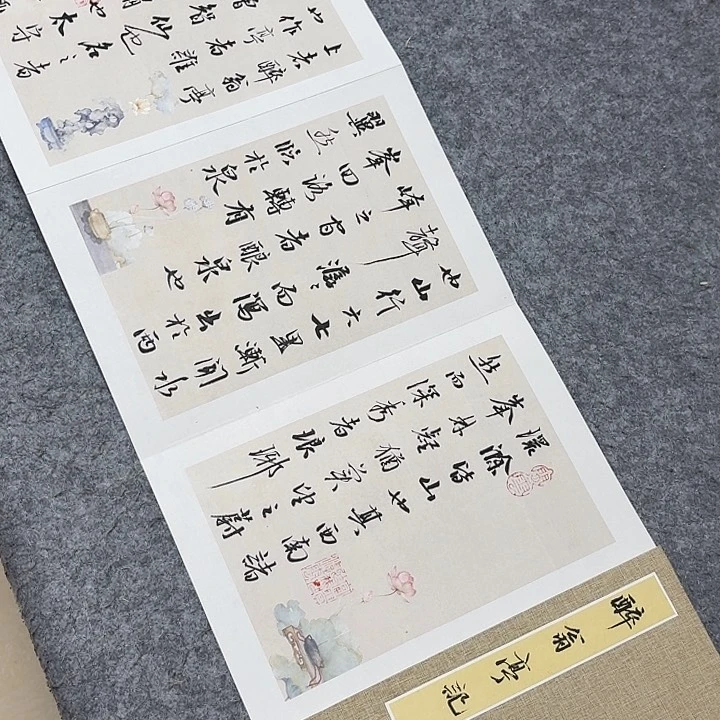 醉翁亭記
環滁皆山也其西南諸
峯林壑猶美望之蔚
然而深秀者琅琊
也山行六七里漸聞水
聲潺潺而瀉出於兩
峰之間者釀泉也
峯回路轉有
翼然臨於泉
上者醉翁亭
也作亭者誰
智仙也
名之者
太守